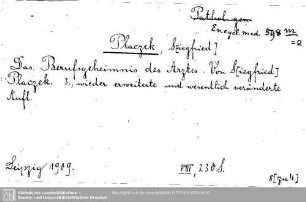 Pathol. gen
Encycl. med. 598 m
=2
Placzek, S[iegfried]
Das Berufsgeheimnis des Arztes. Von S[iegfried]
Placzek. 3., wieder erweiterte und wesentlich veränderte
Aufl.
Leipzig 1909. VIII 230 S.
8[zu4]
Sächsische Landesbibliothek -
Staats- und Universitätsbibliothek Dresden